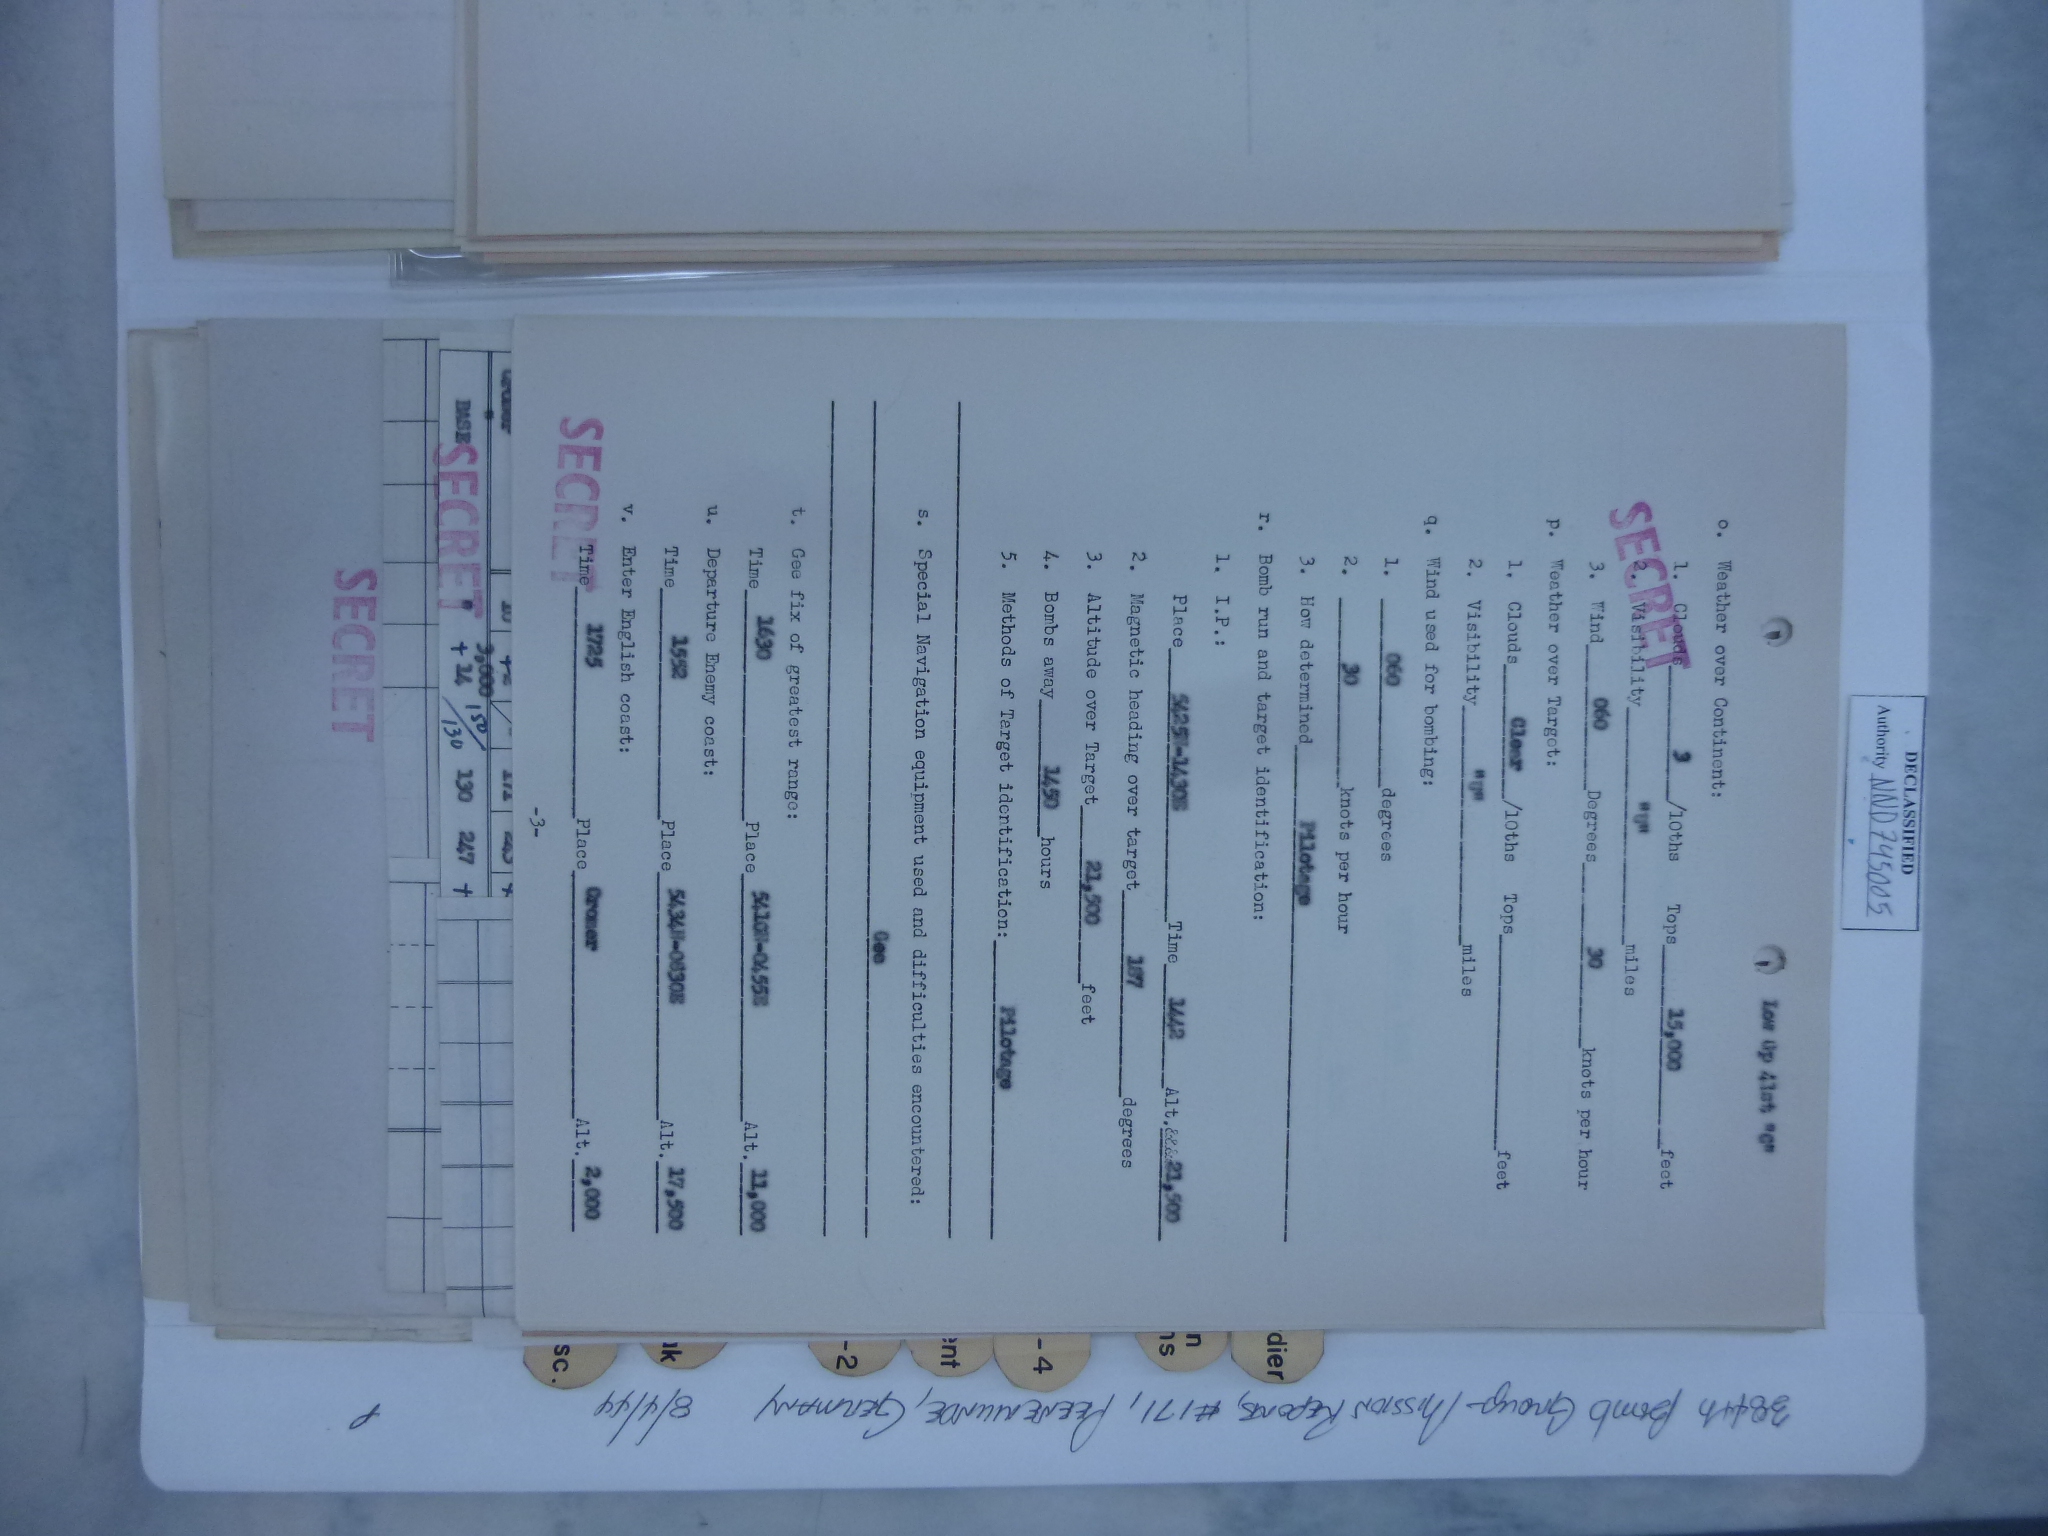 DECLASSIFIED
Authority NND 745005
Low Gp 41st "C"
o. Weather over Continent:
1. Clouds 3 /10ths Tops 15,000 feet
SECRET
2. Visibility "U" miles
3. Wind 060 Degrees 30 knots per hour
p. Weather over Target:
1. Clouds Clear /10ths Tops feet
2. Visibility "U" miles
q. Wind used for bombing:
1. 060 degrees
2. 30 knots per hour
3. How determined Pilotage
r. Bomb run and target identification:
1. I.P.:
Place 5425N-1430E Time 1442 Alt. 21,500
2. Magnetic heading over target 187 degrees
3. Altitude over Target 21,500 feet
4. Bombs away 1450 hours
5. Methods of Target identification: Pilotage
s. Special Navigation equipment used and difficulties encountered:
Gee
t. Gee fix of greatest range:
Time 1630 Place 5410N-0455E Alt. 11,000
u. Departure Enemy coast:
Time 1552 Place 5434N-0830E Alt. 17,500
v. Enter English coast:
Time 1725 Place Cromer Alt. 2,000
SECRET
-3-
3,000 150/
BASE " +14 /130 130 247 +
SECRET
SECRET
dier
n
ns
-4
ent
-2
nk
sc.
384th Bomb Group - Mission Reports, #171, PEENEMUNDE, GERMANY 8/4/44